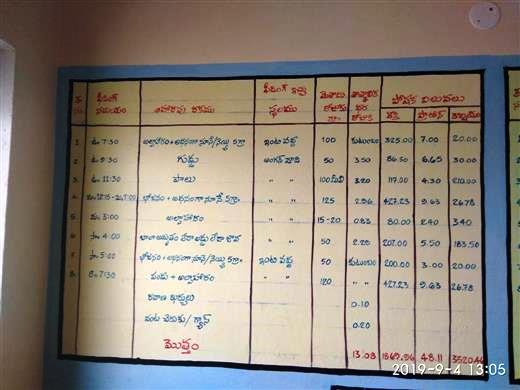 క్ర. సం. ఫీడింగ్ సమయం ఆహారపు రకము ఫీడింగ్ ఇచ్చే స్థలము మోతాదు రోజుకు గ్రా. పోషక విలువలు
1 ఉ. 7:30 అల్పాహారం + అదనంగా నూనె/నెయ్యి 5 గ్రా ఇంటి వద్ద 100 కుటుంబం 325.00 7.00 20.00
2 ఉ. 9:30 గుడ్డు అంగన్ వాడి 50 3.50 86.50 6.65 30.00
3 ఉ. 11:30 పాలు " " 100 మి.లి 3.20 117.00 4.30 210.00
4 భోజనం + అదనంగా నూనె 5 గ్రా. " " 125 2.96 427.23 9.63 26.78
5 మ. 3:00 అల్పాహారం " " 15-20 0.83 80.00 2.40 3.40
6 సా. 4:00 బాలామృతం " " 50 2.28 207.00 5.50 183.50
7 సా. 5:00 భోజనం + అదనంగా నూనె/నెయ్యి 5 గ్రా. ఇంటి వద్ద 50 కుటుంబం 200.00 3.00 20.00
8 రా. 7:30 పండు + అల్పాహారం " " 120 " 427.23 9.63 26.78
రవాణా ఖర్చులు 0.10
వంట చెరుకు/గ్యాస్ 0.20
మొత్తం 13.08 1869.96 48.11
2019-9-4 13:05